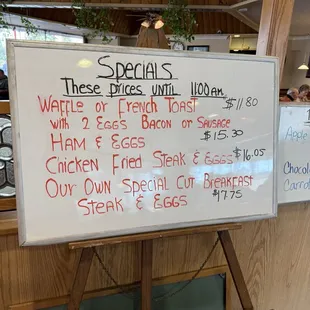 Specials
These prices until 11:00am
Waffle or French Toast $11.80
with 2 Eggs Bacon or Sausage
Ham & Eggs $15.30
Chicken Fried Steak & Eggs $16.05
Our Own Special Cut Breakfast
Steak & Eggs $17.75
Apple
Chocol
Carro